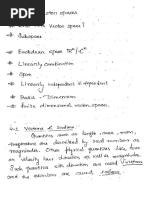 vector spaces
→ What is vector space?
→ Subspaces
→ Euclidean space Rⁿ / Cⁿ
→ Linearly combination
→ Span
→ Linearly independent & dependent
→ Basis - Dimension
→ finite dimensional vector space.
Vectors & Scalars
Quantities such as length, area, mass,
temperature are described by real numbers as
magnitudes. Other physical quantities like force
or velocity have direction as well as magnitudes.
Such quantities with direction are called Vectors
and the numbers are called scalars.